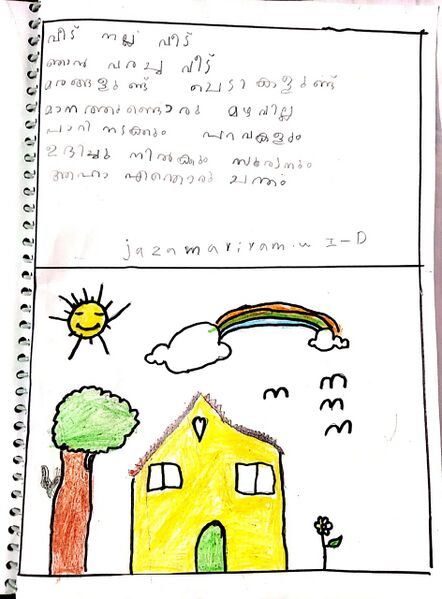 വീട് നല്ല വീട്
ഞാൻ വരച്ച വീട്
മരങ്ങളുണ്ട് ചെടികളുണ്ട്
മാനത്തുണ്ടൊരു മഴവില്ല്
പാറി നടക്കും പറവകളും
ഉദിച്ചു നിൽക്കും സൂര്യനും
ആഹാ എന്തൊരു ചന്തം
jazamariyam.u I-D